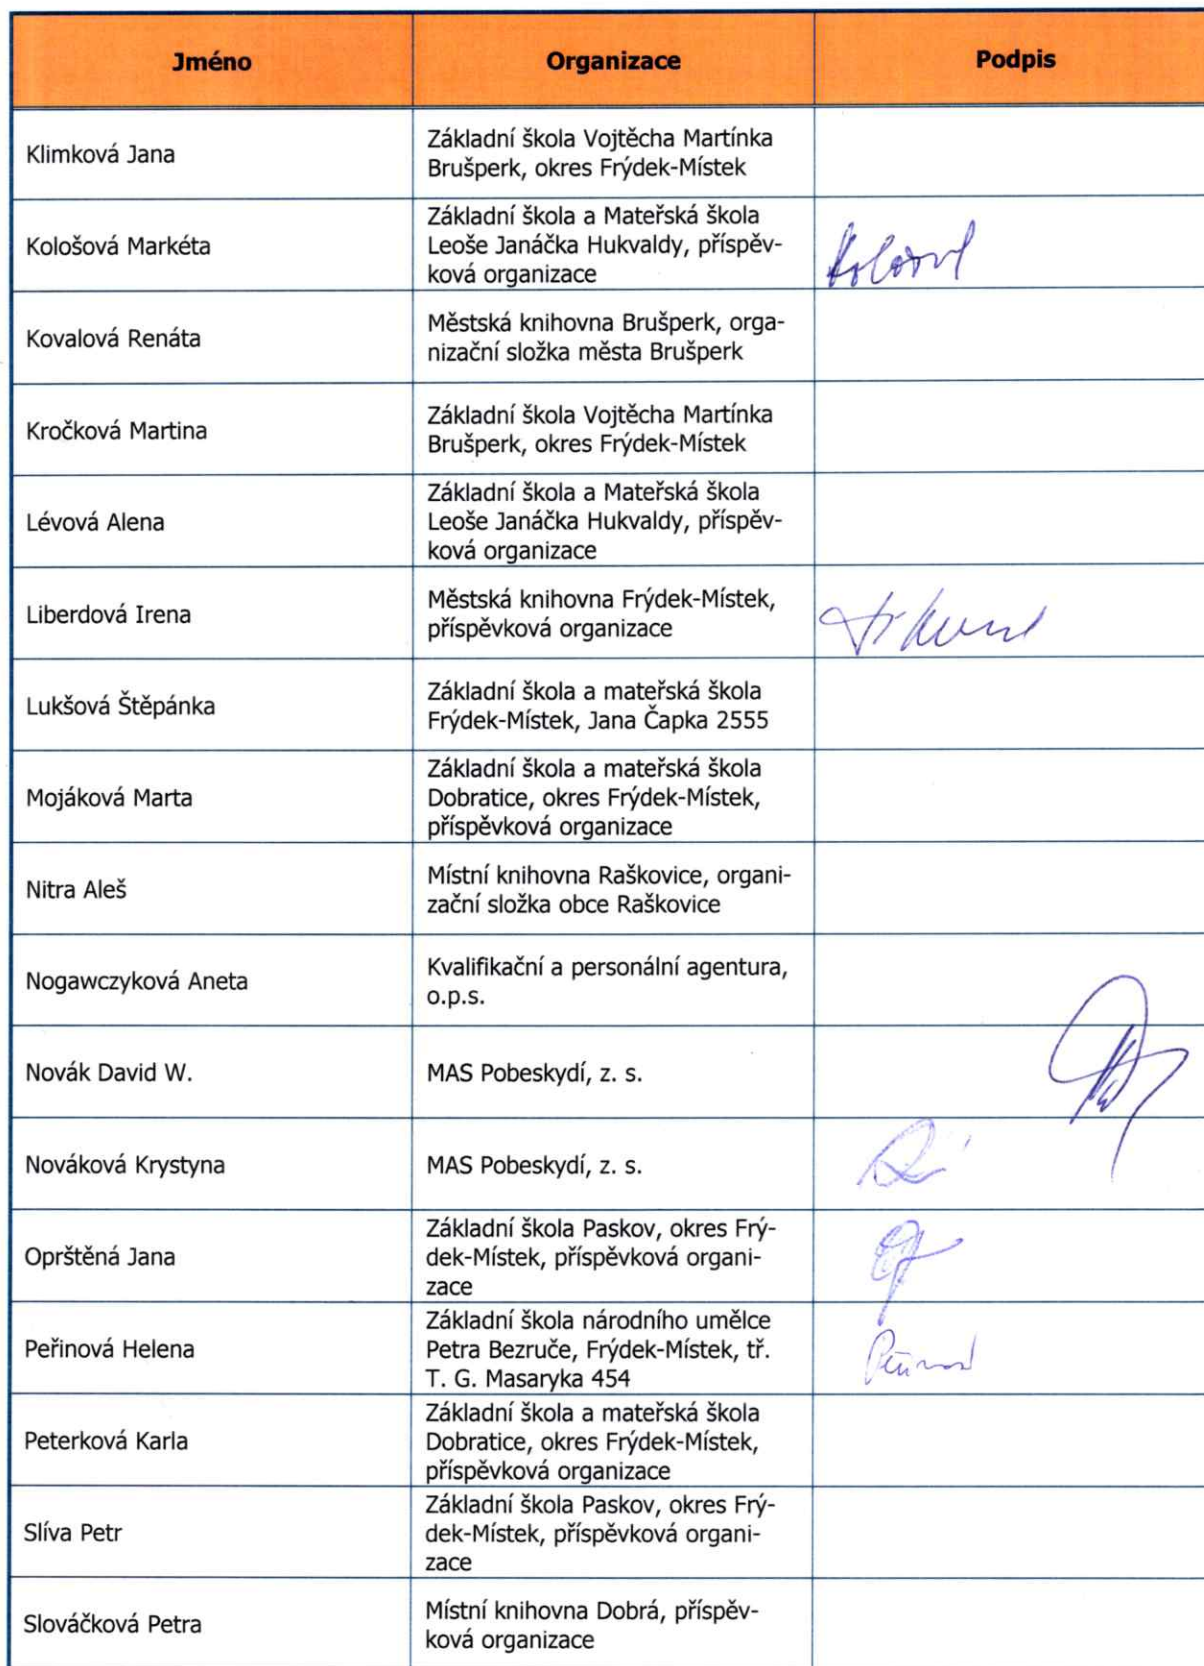 Jméno Organizace Podpis
Klimková Jana
Základní škola Vojtěcha Martínka
Brušperk, okres Frýdek-Místek
Kološová Markéta
Základní škola a Mateřská škola
Leoše Janáčka Hukvaldy, příspěv-
ková organizace
Kovalová Renáta
Městská knihovna Brušperk, orga-
nizační složka města Brušperk
Kročková Martina
Základní škola Vojtěcha Martínka
Brušperk, okres Frýdek-Místek
Lévová Alena
Základní škola a Mateřská škola
Leoše Janáčka Hukvaldy, příspěv-
ková organizace
Liberdová Irena
Městská knihovna Frýdek-Místek,
příspěvková organizace
Lukšová Štěpánka
Základní škola a mateřská škola
Frýdek-Místek, Jana Čapka 2555
Mojáková Marta
Základní škola a mateřská škola
Dobratice, okres Frýdek-Místek,
příspěvková organizace
Nitra Aleš
Místní knihovna Raškovice, organi-
zační složka obce Raškovice
Nogawczyková Aneta
Kvalifikační a personální agentura,
o.p.s.
Novák David W.
MAS Pobeskydí, z. s.
Nováková Krystyna
MAS Pobeskydí, z. s.
Oprštěná Jana
Základní škola Paskov, okres Frý-
dek-Místek, příspěvková organi-
zace
Peřinová Helena
Základní škola národního umělce
Petra Bezruče, Frýdek-Místek, tř.
T. G. Masaryka 454
Peterková Karla
Základní škola a mateřská škola
Dobratice, okres Frýdek-Místek,
příspěvková organizace
Slíva Petr
Základní škola Paskov, okres Frý-
dek-Místek, příspěvková organi-
zace
Slováčková Petra
Místní knihovna Dobrá, příspěv-
ková organizace